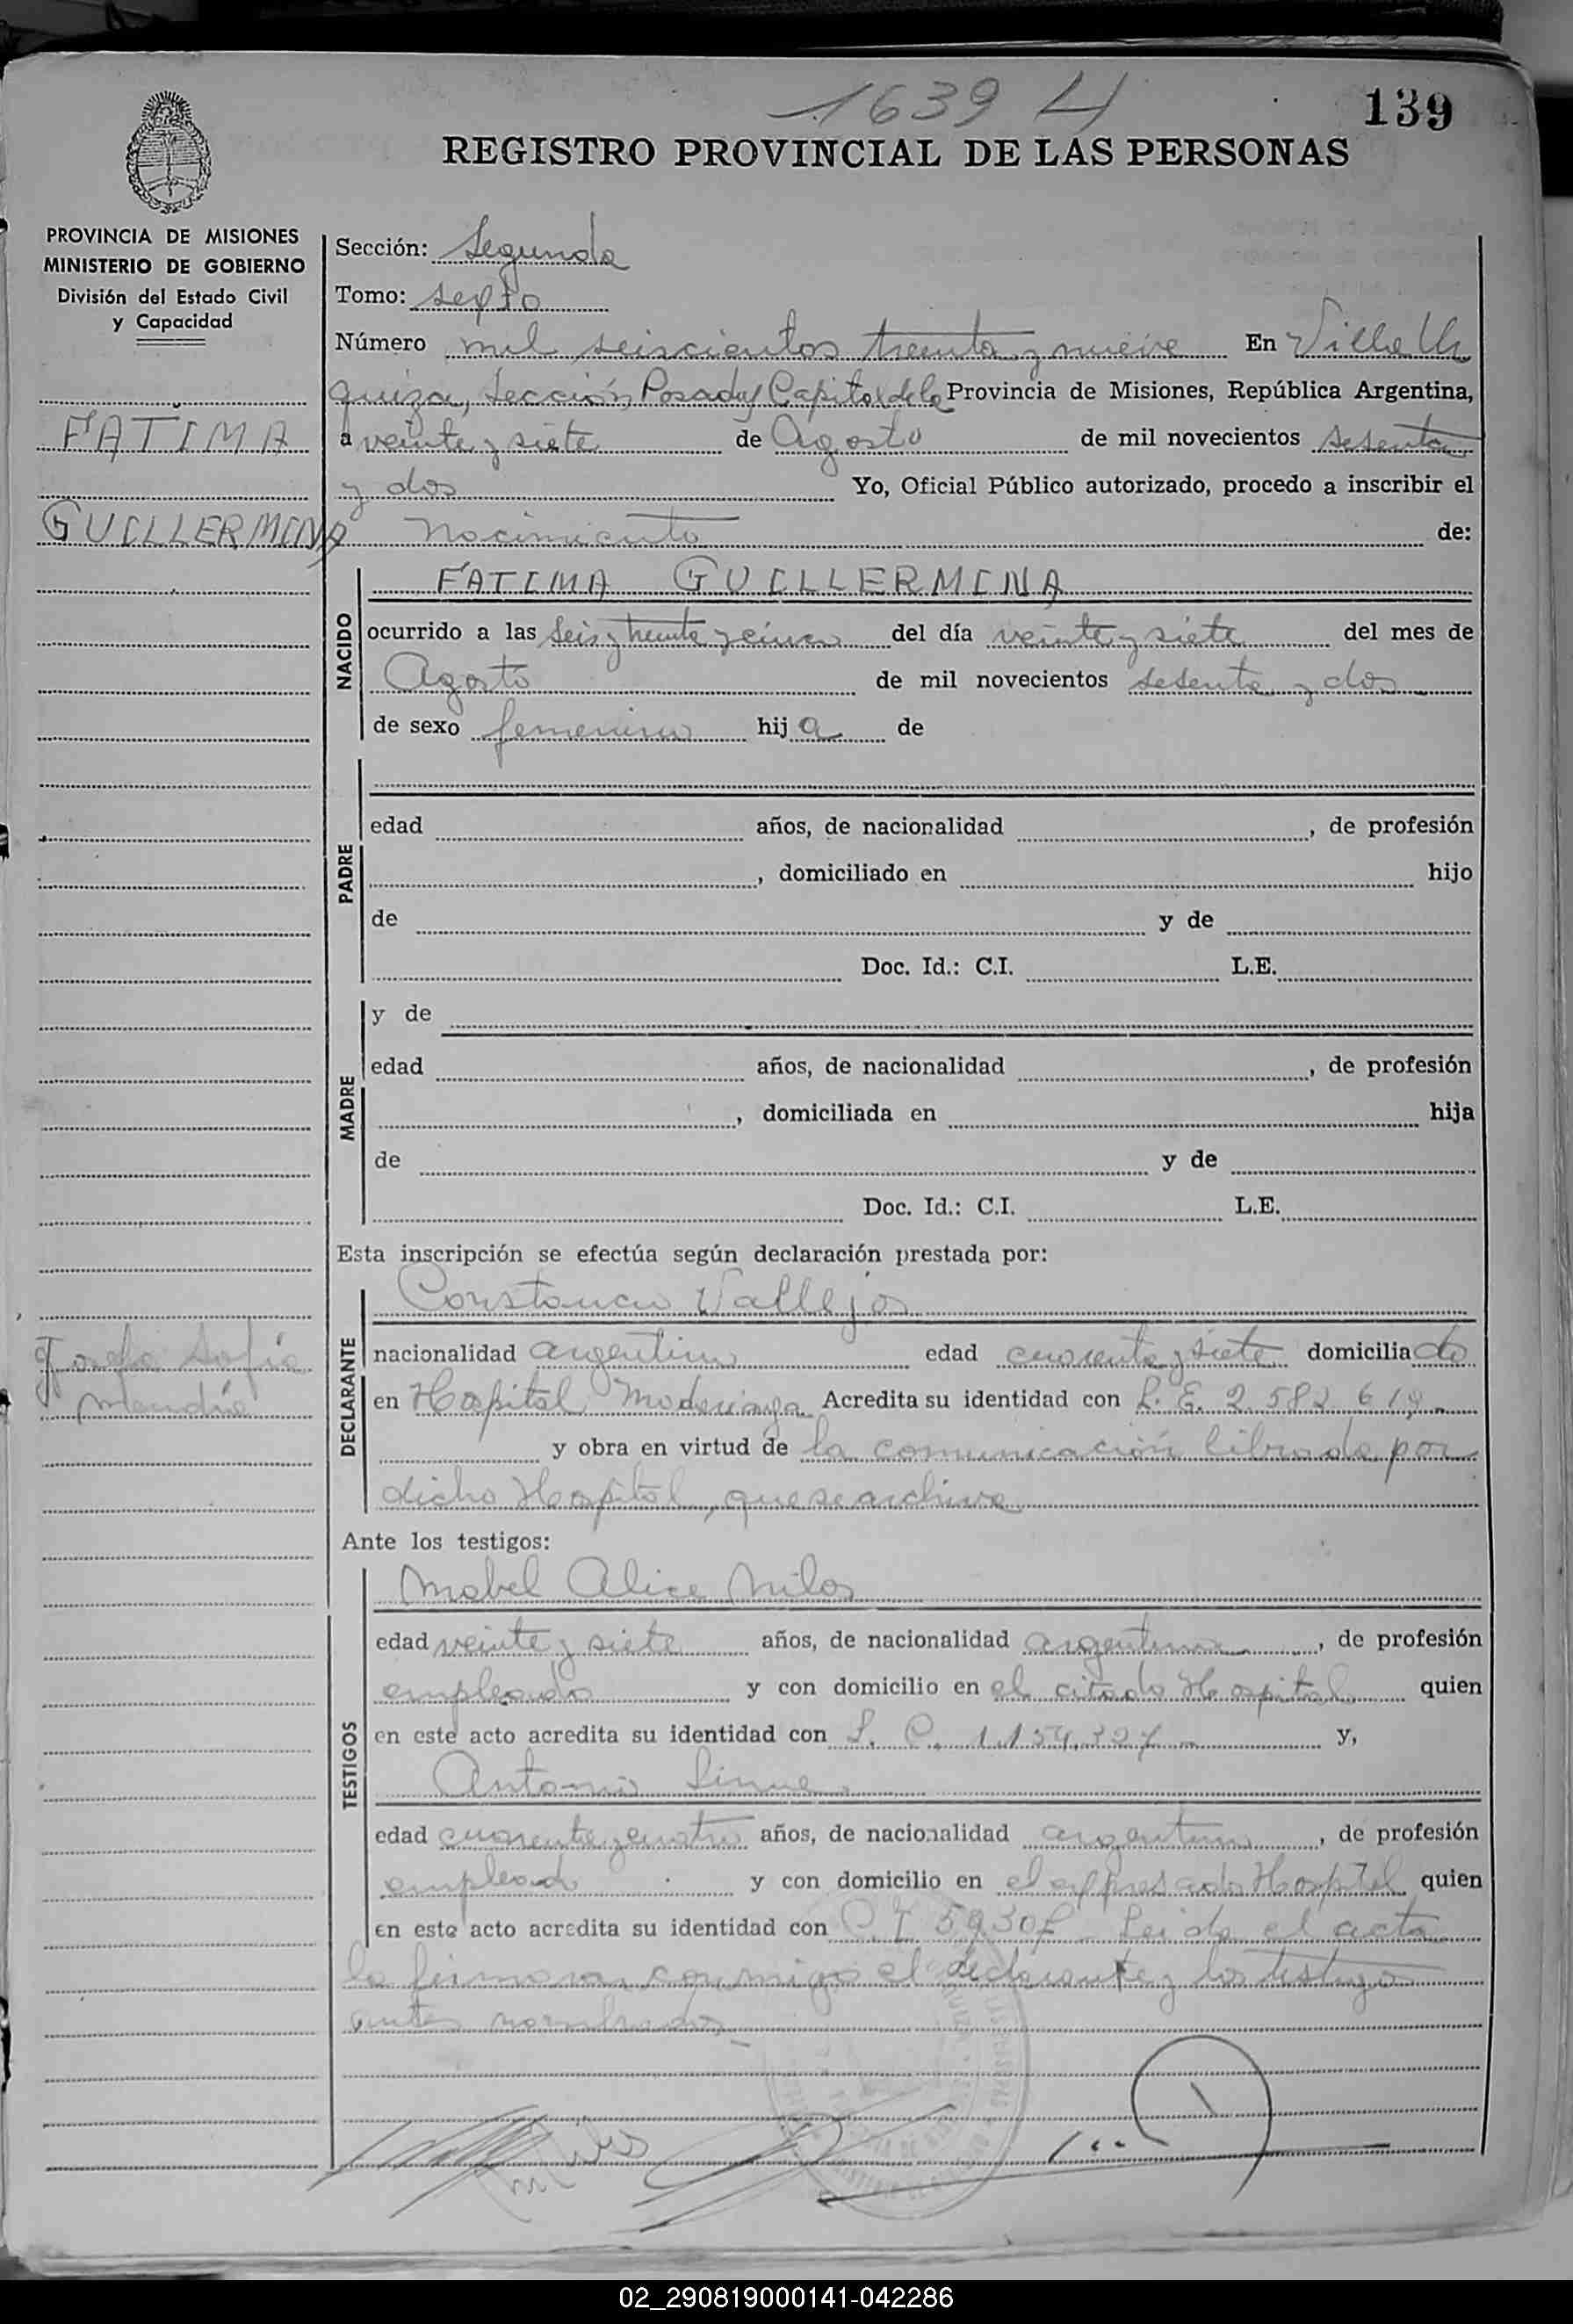 1639 4
139
REGISTRO PROVINCIAL DE LAS PERSONAS
PROVINCIA DE MISIONES
MINISTERIO DE GOBIERNO
División del Estado Civil
y Capacidad
FATIMA
GUILLERMINA
Josefa Sofía
Sección: Segunda
Tomo: sexto
Número mil seiscientos treinta y nueve En Villa Ur
quiza, Sección Posadas Capital de la Provincia de Misiones, República Argentina,
a veinte y siete de Agosto de mil novecientos sesenta
y dos Yo, Oficial Público autorizado, procedo a inscribir el
nacimiento de:
NACIDO
FATIMA GUILLERMINA
ocurrido a las seis y treinta y cinco del día veinte y siete del mes de
Agosto de mil novecientos sesenta y dos
de sexo femenino hija de
PADRE
edad años, de nacionalidad , de profesión
, domiciliado en hijo
de y de
Doc. Id.: C.I. L.E.
MADRE
y de
edad años, de nacionalidad , de profesión
, domiciliada en hija
de y de
Doc. Id.: C.I. L.E.
Esta inscripción se efectúa según declaración prestada por:
DECLARANTE
Constancio Vallejos
nacionalidad argentino edad cuarenta y siete domiciliado
en Hospital Madariaga Acredita su identidad con L. E. 2.582.619
y obra en virtud de la comunicación librada por
dicho Hospital, que se archiva
Ante los testigos:
TESTIGOS
Mabel Alice Milos
edad veinte y siete años, de nacionalidad argentina, de profesión
empleada y con domicilio en el citado Hospital quien
en este acto acredita su identidad con L. C. 1.154.327 y,
Antonio
edad cuarenta y cuatro años, de nacionalidad argentino, de profesión
empleado y con domicilio en el expresado Hospital quien
en este acto acredita su identidad con C. I. Leida el acta
la firmaron conmigo el declarante y los testigos
antes nombrados
02_290819000141-042286